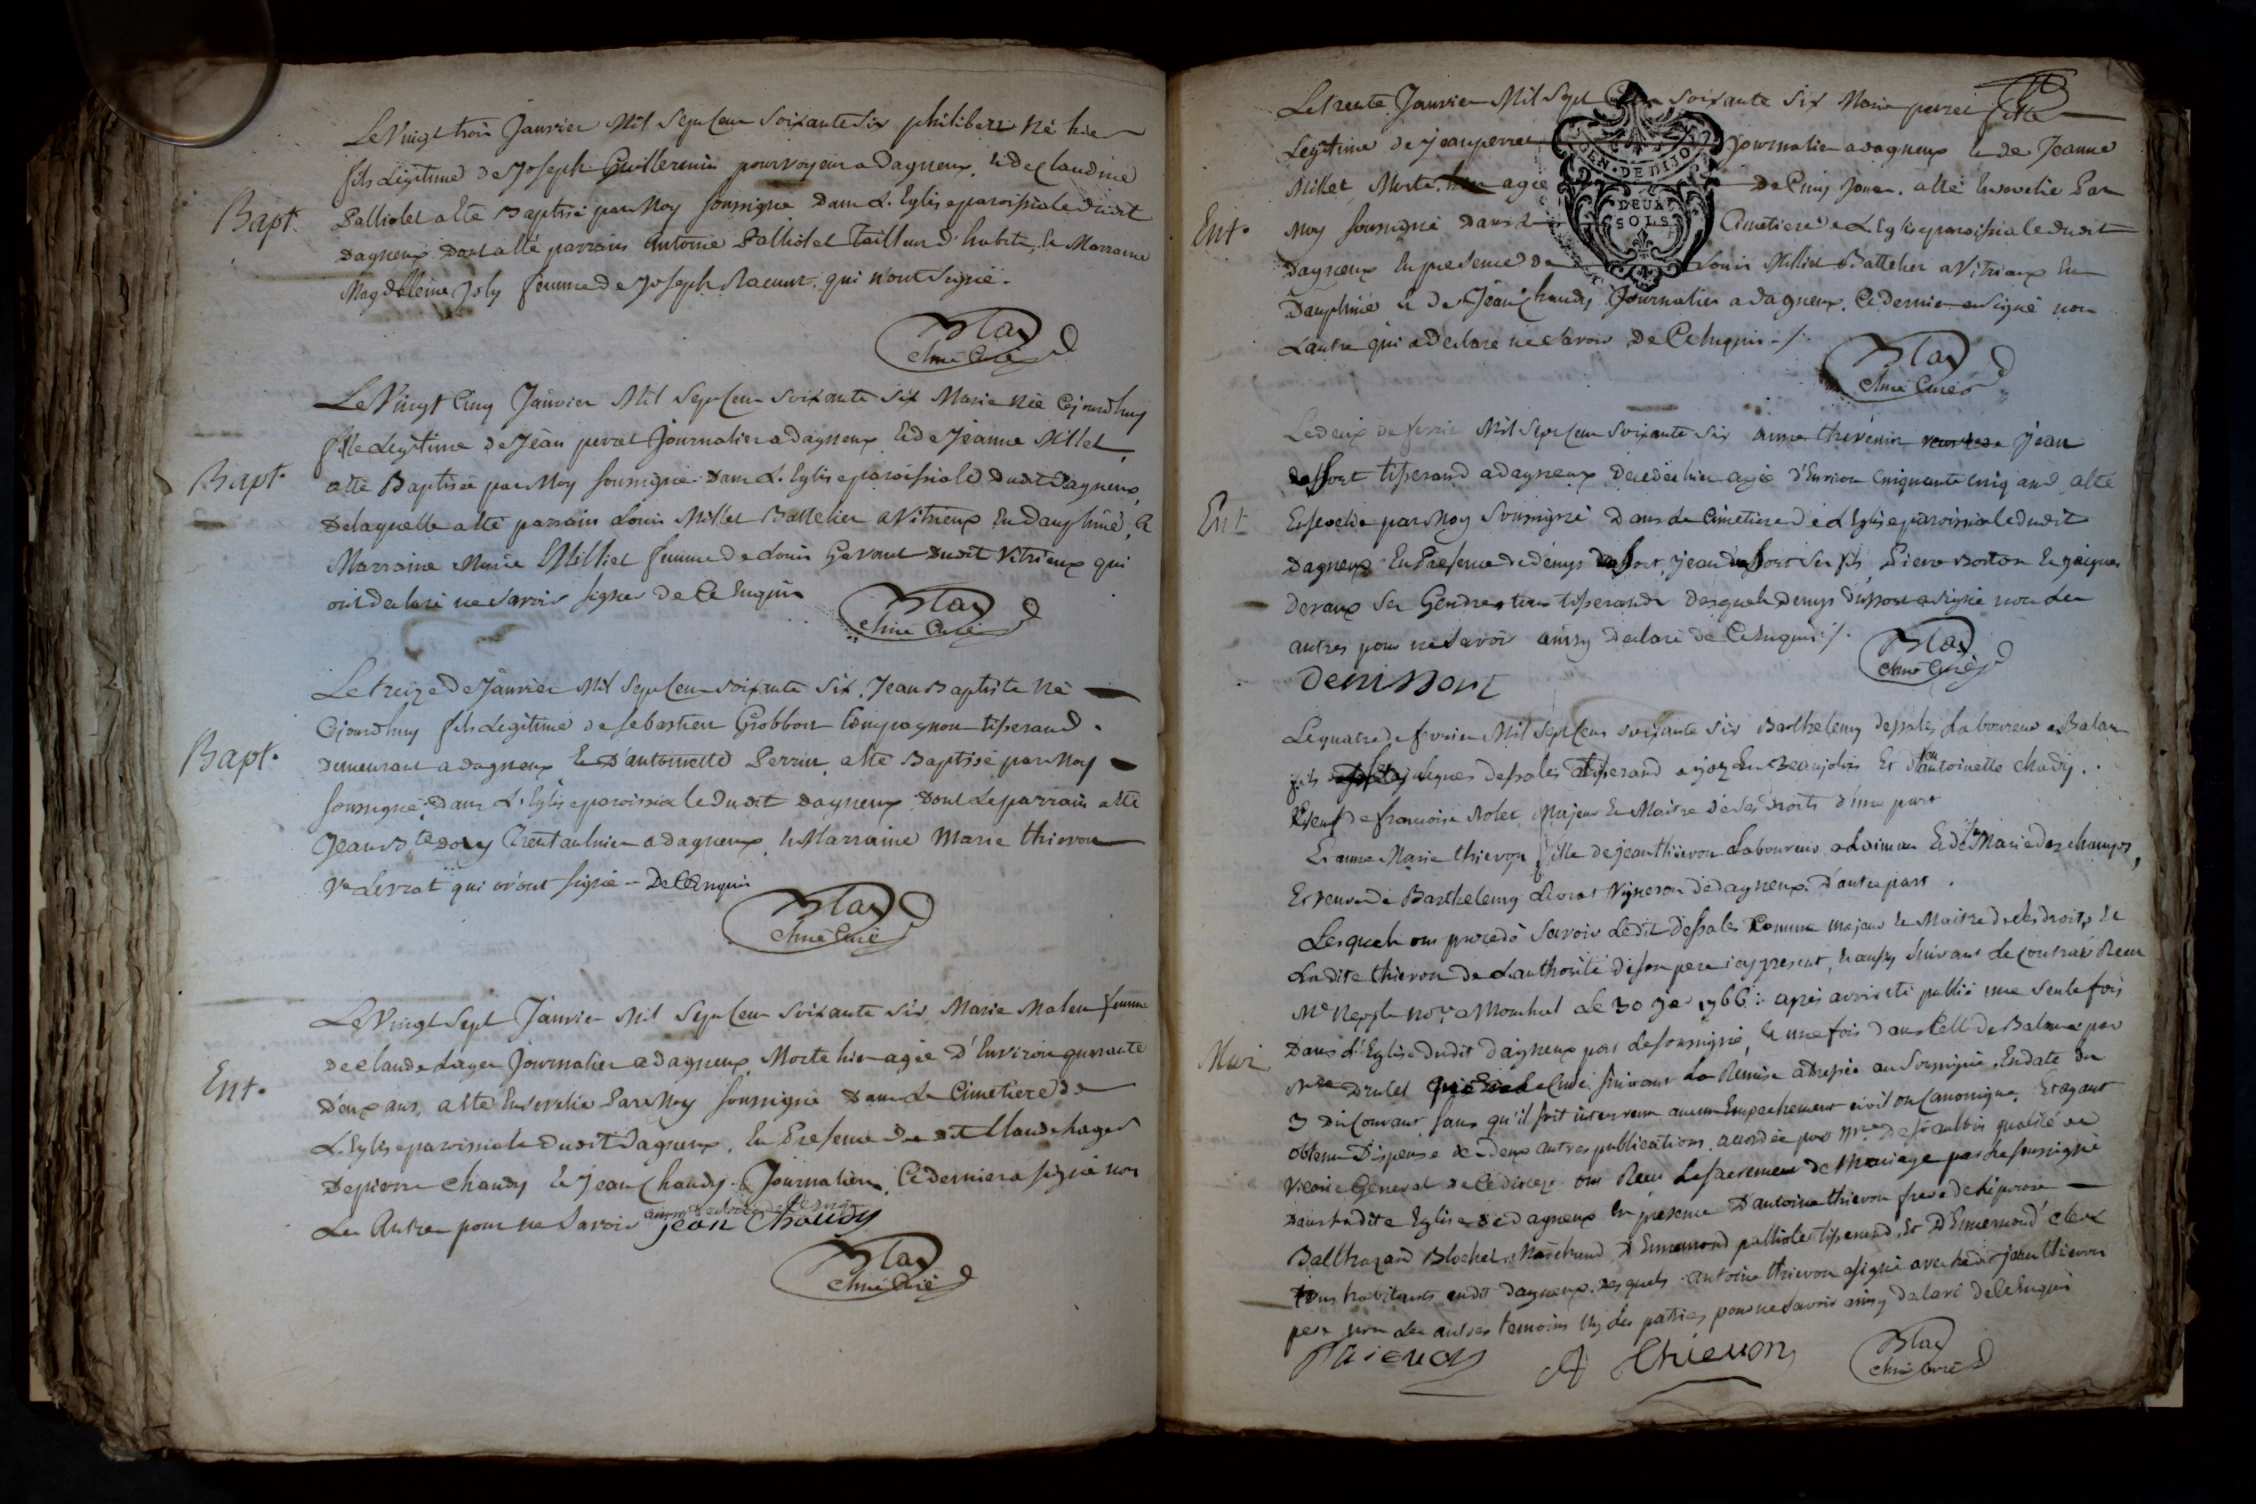 Bapt.
Le Vingt trois Janvier Mil Sept Cent Soixante Six philibert né hier
fils Légitime de Joseph Guillermin pourvoyeur a Dagneux, & de Claudine
Palliolet a été Baptisé par Moy soussigné dans L'Eglise paroissiale dudit
Dagneux dont a été parrain Antoine Palliolet Tailleur d'habits, la Marraine
Magdelleine Joly femme de Joseph qui n'ont signé.
Blad
curé
Bapt.
Le Vingt Cinq Janvier Mil Sept Cent Soixante Six Marie née Cejourdhuy
fille Légitime de Jean peret Journalier a Dagneux & de Jeanne Millet
a été Baptisée par Moy soussigné dans L'Eglise paroissiale dudit Dagneux,
De laquelle a été parrain Louis Millet Battelier a Vitrieux En Dauphiné, &
Marraine Marie Milliet femme de Louis Gavout dudit Vitrieux qui
ont declaré ne savoir signer de Ce Enquis
Blad
curé
Bapt.
Le treize de Janvier Mil Sept Cent soixante Six, Jean Baptiste né
Cejourdhuy fils Légitime de sebastien Grobbon Compagnon tisserand
demeurant a dagneux & d'antoinette Perrin a été Baptisé par Moy
soussigné dans L'Eglise paroissiale dudit Dagneux dont Le parrain a été
Jean Bte a dagneux, la Marraine Marie thievon
Ve Livrat qui n'ont signé - De Ce Enquis
Blad
curé
Ent.
Le Vingt Sept Janvier Mil Sept Cent Soixante Six Marie femme
de Claude Lager Journalier a dagneux Morte hier agée d'Environ quarante
deux ans, a été Ensevelie Par Moy soussigné dans Le Cimetiere de
L'Eglise paroissiale dudit Dagneux, En Presence dudit Claude Lager
De pierre Chaudy & Jean Chaudy Journaliers, Ce dernier a signé non
Les Autres pour ne Savoir ainsy declaré de ce Enquis
jean Chaudy
Blad
curé
Le trente Janvier Mil Sept Cent soixante Six Marie perret fille
Legitime de jean perret Journalier a dagneux & de Jeanne
Millet, Morte agée De Cinq Jours, a été Ensevelie Par
GEN. DE DIJON
DEUX
SOLS
Ent.
Moy soussigné dans Le Cimetiere de L'Eglise paroissiale dudit
Dagneux En presence de Louis Milliet Battelier a Vitrieux En
Dauphiné & de Jean Chaudy Journalier a dagneux, Ce dernier a signé non
L'autre qui a declaré ne Savoir De Ce Enquis ./.
Blad
curé
Le deux de fevrier Mil Sept Cent Soixante Six anne thevenin Jean
tisserand a dagneux decedée hier agée d'Environ Cinquante Cinq ans, a été
Ent
Ensevelie par Moy Soussigné Dans Le Cimetiere de L'Eglise paroissiale dudit
Dagneux En Presence de denys Jean ses fils, Pierre & jacques
deraux Ses Gendres tous tisserands desquels Denys a signé non Les
autres pour ne Savoir ainsy declaré de Ce Enquis ./.
Blad
curé
Le quatre de fevrier Mil Sept Cent soixante Six Barthelemy dessales Laboureur a Balan
fils de jacques dessales tisserand a joyeu en Beaujolois Et d'antoinette Chady.
Veuf de francoise Rolet, Majeur & Maitre de ses droits d'une part
Et anne Marie thievon fille de jean thievon Laboureur a & de Marie deschamps,
Et veuve de Barthelemy Livrat Vigneron de dagneux d'autre part.
Lesquels ont procedé Savoir Ledit dessales Comme majeur & Maitre de ses droits, &
Ladite thievon de L'authorité de son pere icy present, & aussy suivant Le contrat Receu
Me Nepple nore a Montluel Le 30 Je 1766: apres avoir été publié une seule fois
Mar.
Dans L'Eglise dudit dagneux par Le soussigné, & une fois dans Celle de Balan par
Mre Drulet Curé suivant La Remise adressée au Soussigné, En date du
3 du Courant sans qu'il soit intervenu aucun Empechement civil ou Canonique, Et ayant
obtenu Dispense des deux autres publications accordée par Mre De qualité de
Vicaire General de Ce dioceze ont Receu Le Sacrement de Mariage par Le soussigné
Dans Ladite Eglise de dagneux En presence D'antoine thievon frere de L'epouse
Balthazard Blochet Marchand, D'Ennemond palliolet tisserand, Et D'Ennemond Clerc
tous habitants audit dagneux, desquels Antoine thievon a signé avec Ledit jean thievon
pere non Les autres temoins ny Les parties pour ne Savoir ainsy declaré de Ce Enquis
thievon
A thievon
Blad
curé